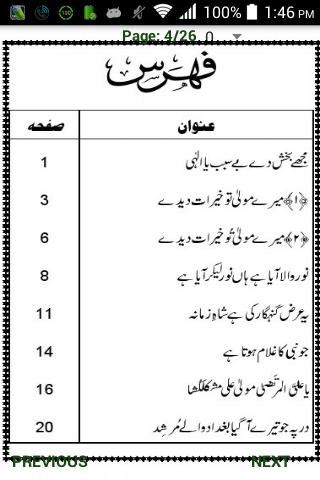 100% 1:46 PM
Page: 4/26
فہرس
عنوان صفحہ
مجھے بخش دے بے سبب یا الٰہی 1
﴿۱﴾ میرے مولیٰ تو خیرات دیدے 3
﴿۲﴾ میرے مولیٰ تُو خیرات دیدے 6
نور والا آیا ہے ہاں نور لیکر آیا ہے 8
یہ عرض گنہگار کی ہے شاہِ زمانہ 11
جو نبی کا غلام ہوتا ہے 14
یا علیَّ المرتَضٰی مولیٰ علی مشکلکُشا 16
در پہ جو تیرے آ گیا بغداد والے مُرشِد 20
PREVIOUS NEXT